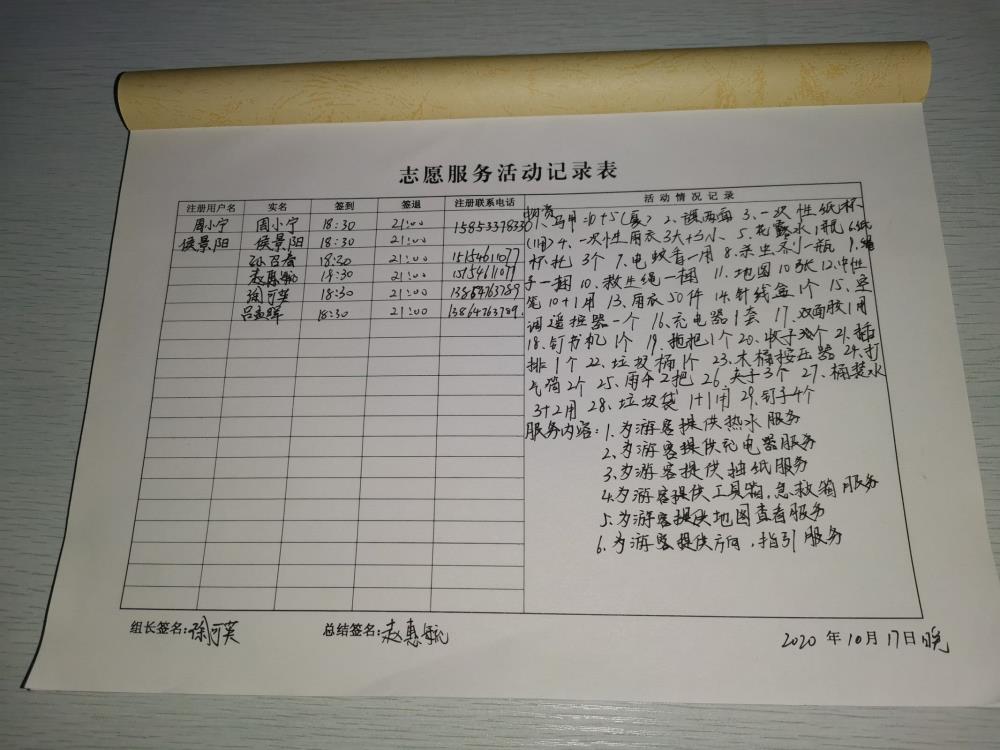 志愿服务活动记录表
注册用户名 实名 签到 签退 注册联系电话 活动情况记录
周小宁 周小宁 18:30 21:00
侯景阳 侯景阳 18:30 21:00
18:30 21:00 15154611077
赵惠航 18:30 21:00 15154611077
徐可英 18:30 21:00 13864763789
18:30 21:00 13864763789.
物资: 1、马甲=10+5(夏) 2、 3、一次性纸杯
4、一次性雨衣3大+5小、 5、花露水1瓶 6.纸
杯托 3个 7、电蚊香一用 8.杀虫剂一瓶 9、绳
子一捆 10、救生绳一捆 11、地图10张 12、中性
笔10+1用 13、雨衣50件 14、针线盒1个 15、空
调遥控器一个 16、充电器1套 17、双面胶1用
18、钉书机1个 19、拖把1个 20、 21、插
排1个 22、垃圾桶1个 23、木桶按压器 24、打
气筒2个 25、雨伞2把 26、夹子3个 27、桶装水
3+2用 28、垃圾袋 1+1用 29、钉子4个
服务内容: 1、为游客提供热水服务
2、为游客提供充电器服务
3、为游客提供抽纸服务
4、为游客提供工具箱,急救箱服务
5、为游客提供地图查看服务
6、为游客提供方向,指引服务
组长签名:徐可英 总结签名:赵惠航 2020年10月17日晚